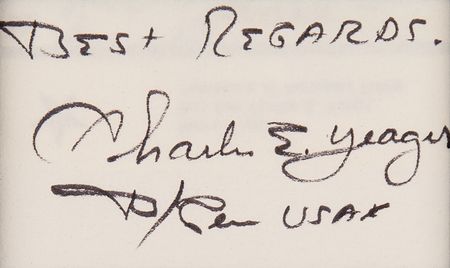 BEST REGARDS.
Charles E. Yeager
B/Gen USAF